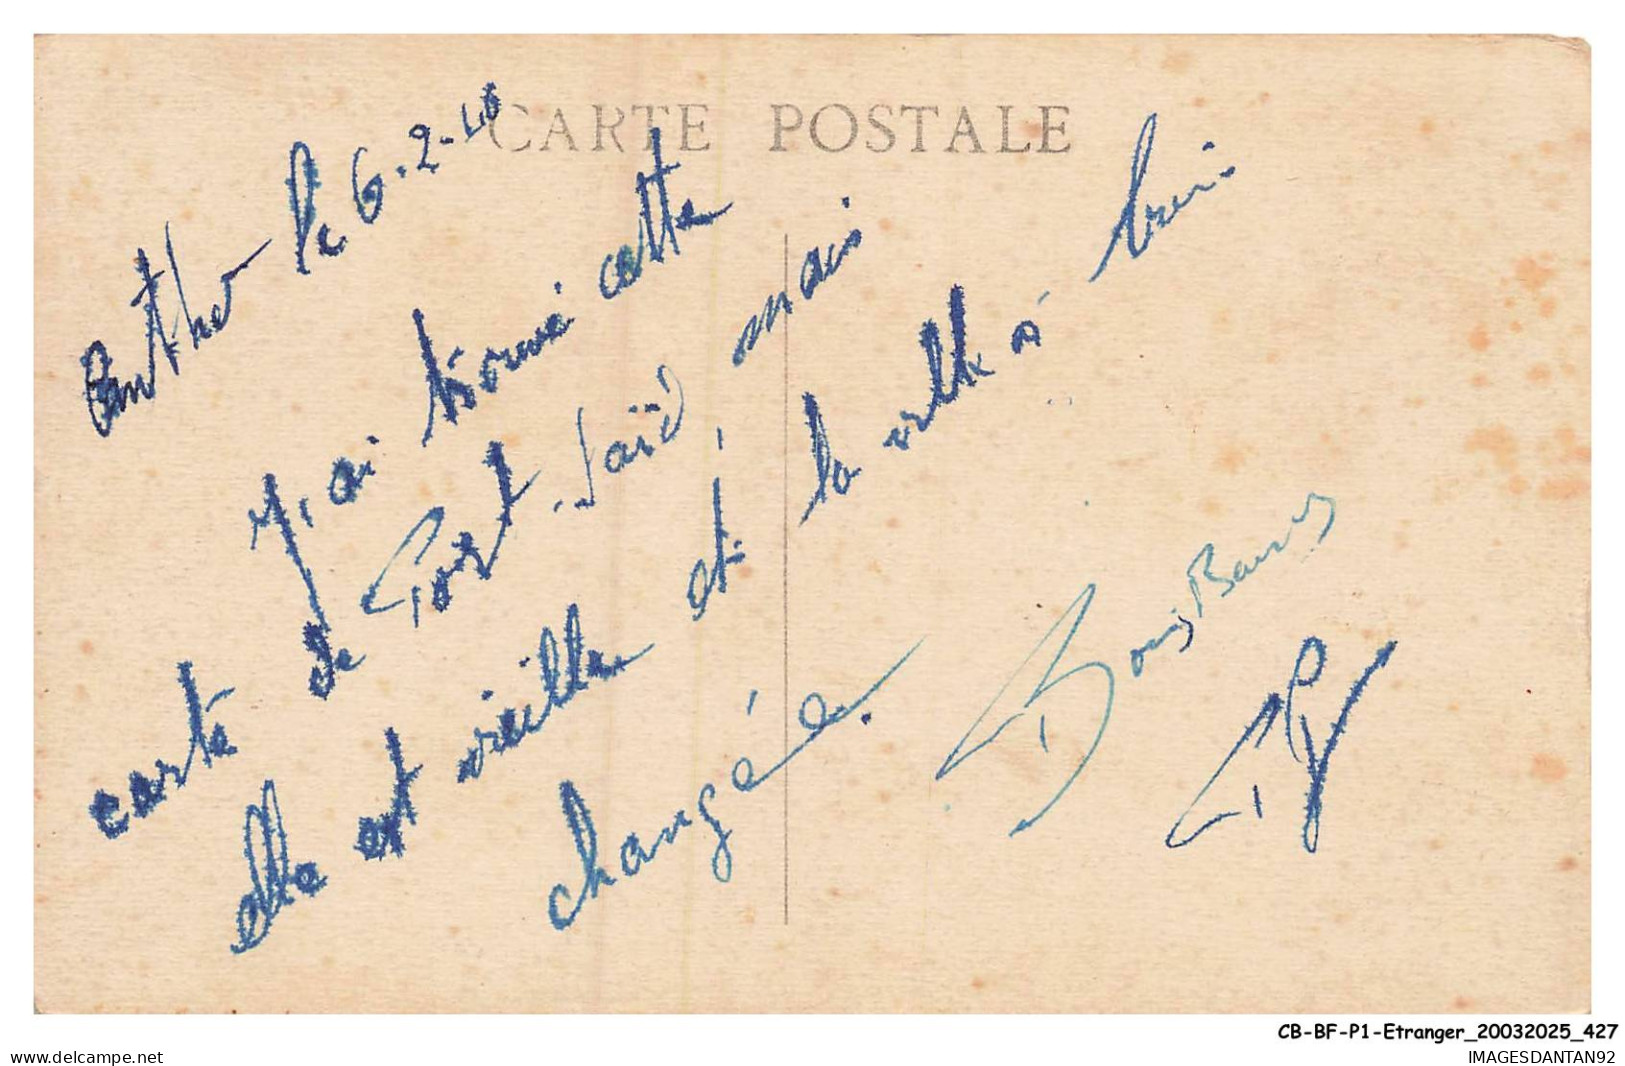 CARTE POSTALE
le 6.2-46
J'ai trouvé cette
carte de Port-Saïd, mais
elle est vieille et la ville a bien
changée.
Bons Baisers
CB-BF-P1-Etranger_20032025_427
www.delcampe.net
IMAGESDANTAN92